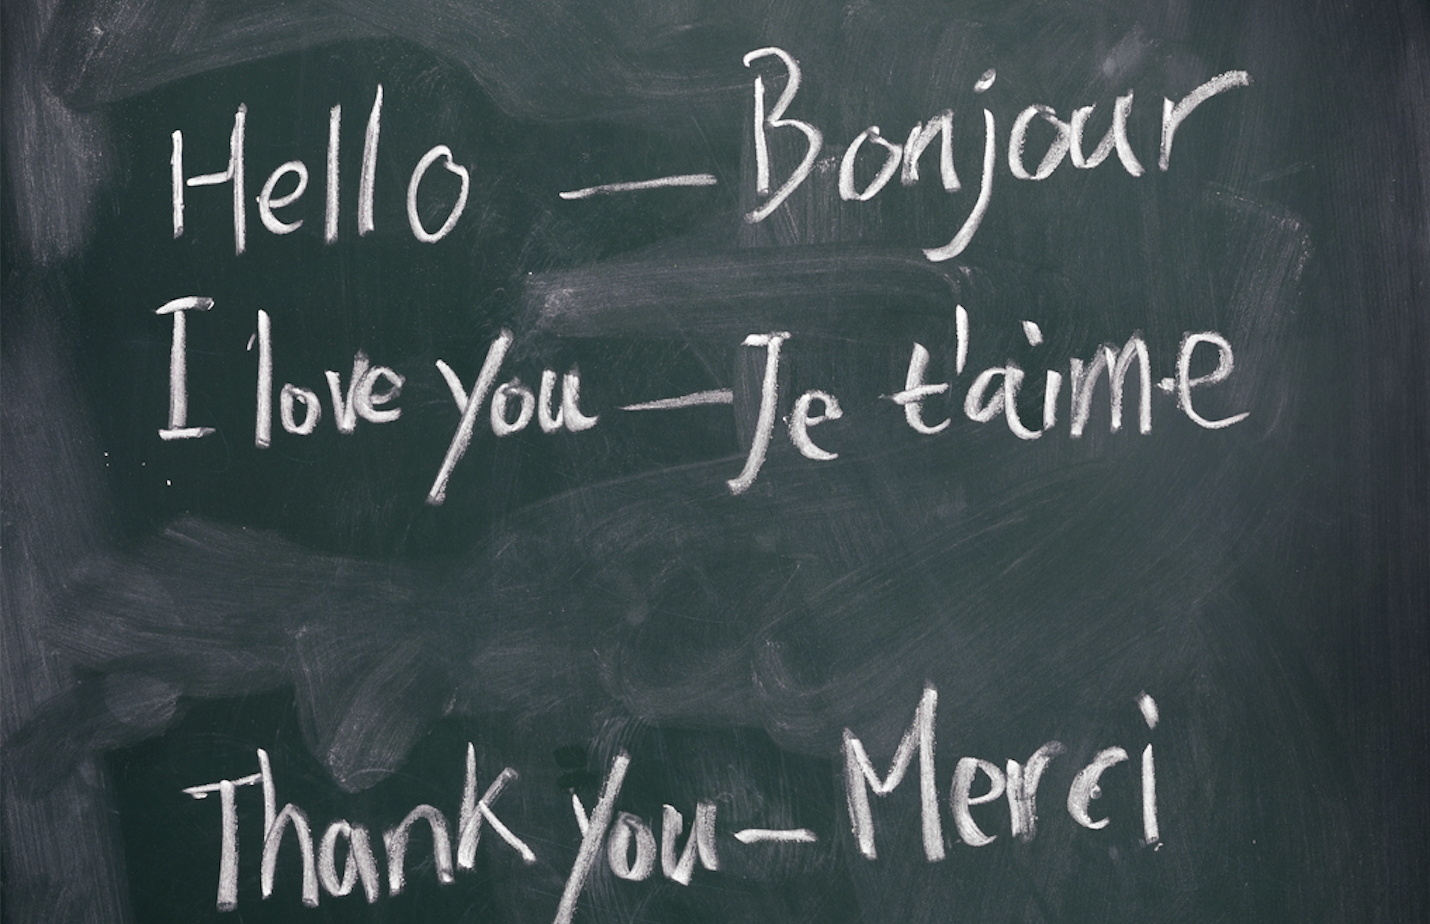 Hello — Bonjour
I love you — Je t'aime
Thank you — Merci